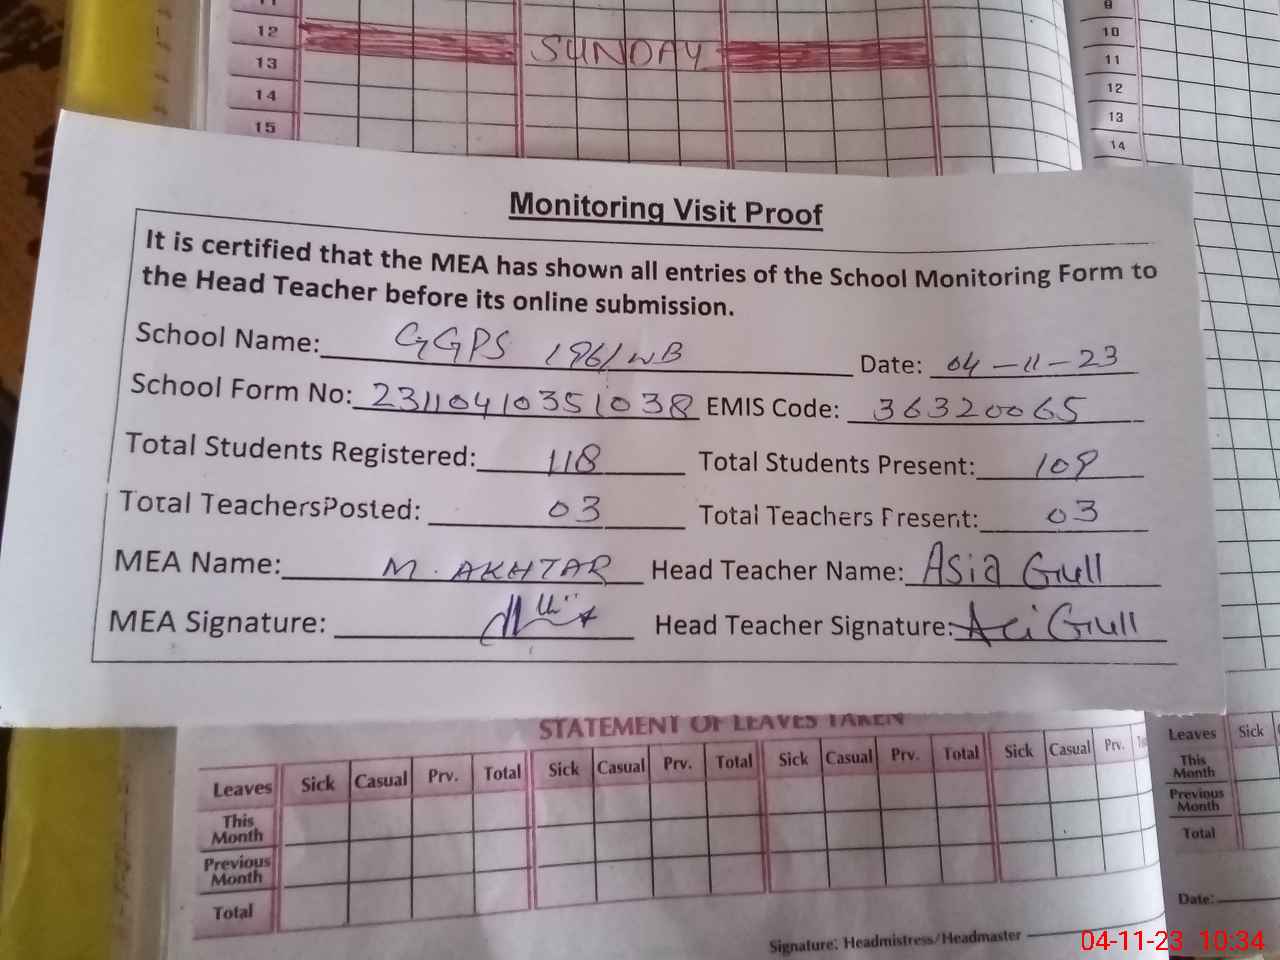 11
12
SUNDAY
13
14
15
9
10
11
12
13
14
Monitoring Visit Proof
It is certified that the MEA has shown all entries of the School Monitoring Form to
the Head Teacher before its online submission.
School Name: GGPS 196/WB Date: 04-11-23
School Form No: 23110410351038 EMIS Code: 36320065
Total Students Registered: 118 Total Students Present: 109
Total TeachersPosted: 03 Total Teachers Present: 03
MEA Name: M. AKHTAR Head Teacher Name: Asia Gull
MEA Signature: Head Teacher Signature: Aci Gull
STATEMENT OF LEAVES TAKEN
Leaves Sick Casual Prv. Total Sick Casual Prv. Total Sick Casual Prv. Total Sick Casual Prv.
This Month
Previous Month
Total
Leaves Sick
This Month
Previous Month
Total
Date:
Signature: Headmistress/Headmaster
04-11-23 10:34